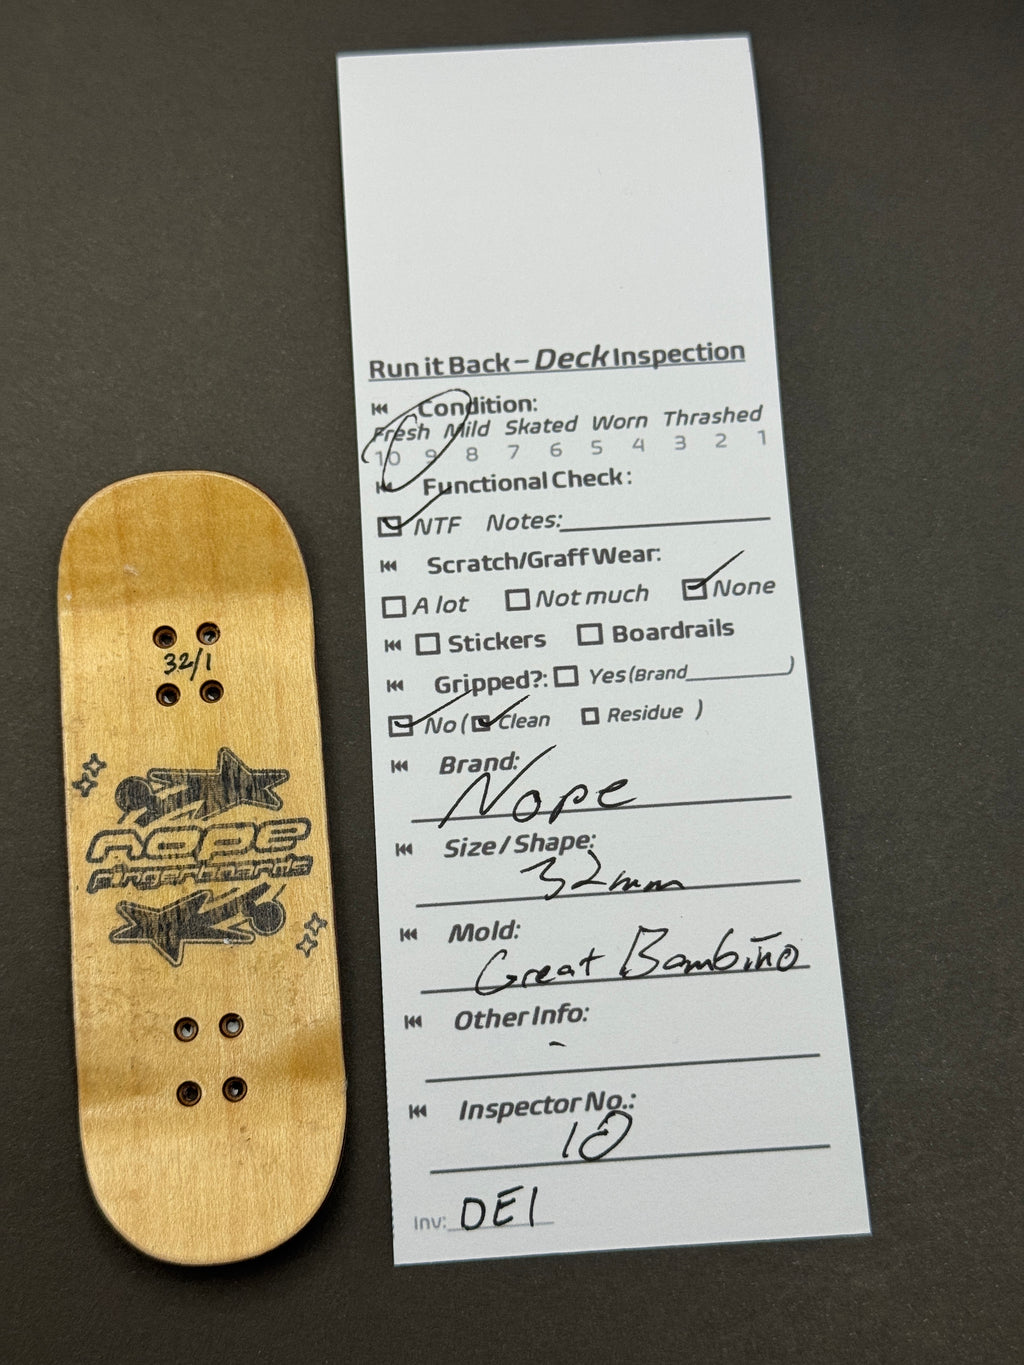 Run it Back – Deck Inspection
Condition:
Fresh Mild Skated Worn Thrashed
10 9 8 7 6 5 4 3 2 1
Functional Check:
NTF Notes:
Scratch/Graff Wear:
A lot Not much None
Stickers Boardrails
Gripped?: Yes (Brand )
No ( Clean Residue )
Brand:
Nope
Size / Shape:
32mm
Mold:
Great Bambino
Other Info:
-
Inspector No.:
10
Inv: DE1
32/1
nope
fingerboards